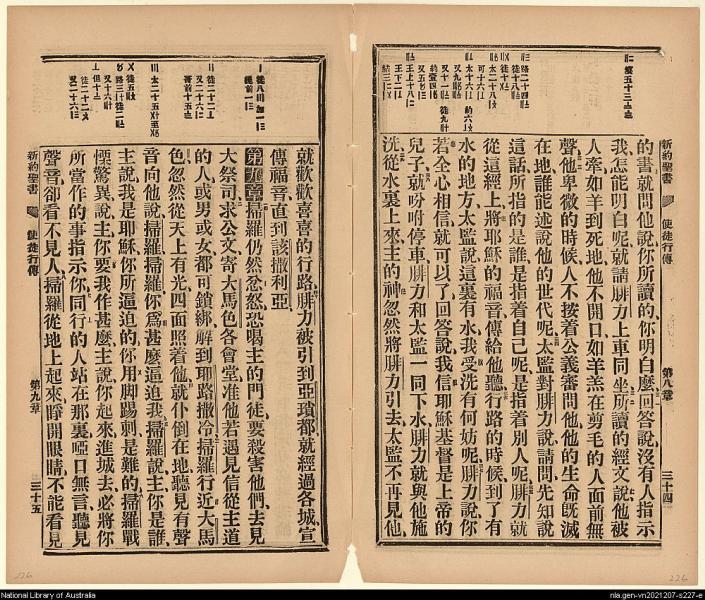 新約聖書
使徒行傳
第八章
三十四
的書就問他說你所讀的你明白麼回答說沒有人指示
我怎能明白呢就請腓力上車同坐所讀的經文說他被
人牽如羊到死地他不開口如羊羔在剪毛的人面前無
聲他卑微的時候人不按着公義審問他他的生命旣滅
在地誰能述說他的世代呢太監對腓力說請問先知說
這話所指的是誰是指着自己呢是指着別人呢腓力就
從這經上將耶穌的福音傳給他聽行路的時候到了有
水的地方太監說這裏有水我受洗有何妨呢腓力說你
若全心相信就可以了回答說我信耶穌基督是上帝的
兒子就吩咐停車腓力和太監一同下水腓力就與他施
洗從水裏上來主的神忽然將腓力引去太監不再見他
就歡歡喜喜的行路腓力被引到亞瑣都就經過各城宣
傳福音直到該撒利亞
第九章掃羅仍然忿怒恐喝主的門徒要殺害他們去見
大祭司求公文寄大馬色各會堂准他若遇見信從主道
的人或男或女都可鎖綁解到耶路撒冷掃羅行近大馬
色忽然從天上有光四面照着他就仆倒在地聽見有聲
音向他說掃羅掃羅你爲甚麼逼迫我掃羅說主你是誰
主說我是耶穌你所逼迫的你用脚踢刺是難的掃羅戰
慄驚異說主你要我作甚麼主說你起來進城去必將你
所當作的事指示你同行的人站在那裏啞口無言聽見
聲音卻看不見人掃羅從地上起來睜開眼睛不能看見
新約聖書
使徒行傳
第九章
三十五
226
226
National Library of Australia
nla.gen-vn2021207-s227-e